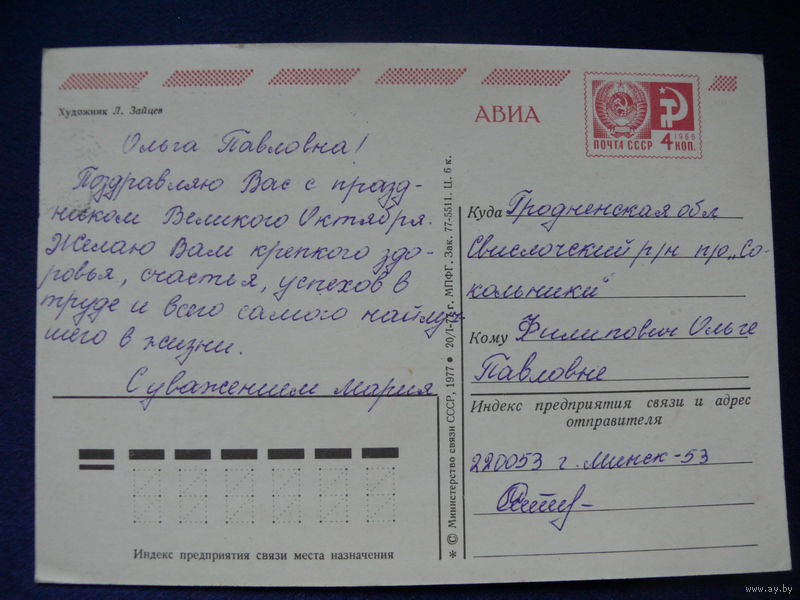 Художник Л. Зайцев
Ольга Павловна!
Поздравляю Вас с празд-
ником Великого Октября.
Желаю Вам крепкого здо-
ровья, счастья, успехов в
труде и всего самого найлуч
шего в жизни.
С уважением Мария
Индекс предприятия связи места назначения
* © Министерство связи СССР, 1977 ● 20/I-78 г. МПФГ. Зак. 77-5511. Ц. 6 к.
АВИА
ПОЧТА СССР
1966
4 КОП.
Куда Гродненская обл
Свислочский р/н п/о „Со-
кольники"
Кому Филипович Ольге
Павловне
Индекс предприятия связи и адрес
отправителя
220053 г. Минск-53
www.ay.by